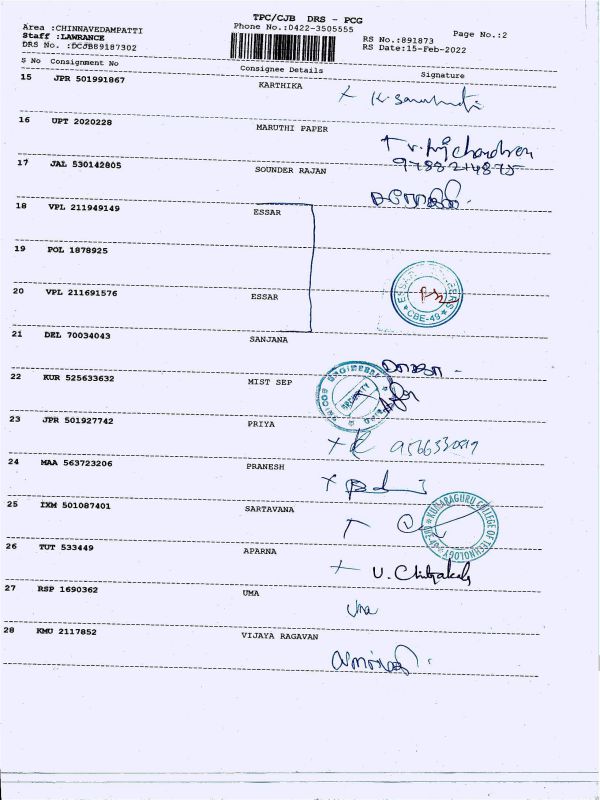 TPC/CJB DRS - PCG
Area :CHINNAVEDAMPATTI
Phone No.:0422-3505555
Staff :LAWRANCE
RS No.:891873 Page No.:2
DRS No. :DCJB89187302
RS Date:15-Feb-2022
S No Consignment No Consignee Details Signature
15 JPR 501991867 KARTHIKA
16 UPT 2020228 MARUTHI PAPER
9788214875
17 JAL 530142805 SOUNDER RAJAN
18 VPL 211949149 ESSAR
19 POL 1878925
20 VPL 211691576 ESSAR
CBE-49
21 DEL 70034043 SANJANA
22 KUR 525633632 MIST SEP
SECURITY
23 JPR 501927742 PRIYA
24 MAA 563723206 PRANESH
25 IXM 501087401 SARTAVANA
KUMARAGURU COLLEGE OF TECHNOLOGY
26 TUT 533449 APARNA
27 RSP 1690362 UMA
Uma
28 KMU 2117852 VIJAYA RAGAVAN